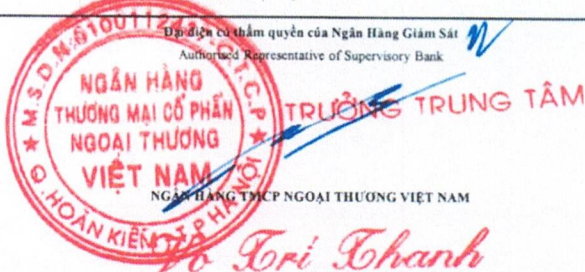 Đại diện có thẩm quyền của Ngân Hàng Giám Sát
Authorised Representative of Supervisory Bank
M.S.D.N:0100112437-C.T.C.P
NGÂN HÀNG
THƯƠNG MẠI CỔ PHẦN
NGOẠI THƯƠNG
VIỆT NAM
Q.HOÀN KIẾM-T.P HÀ NỘI
TRƯỞNG TRUNG TÂM
NGÂN HÀNG TMCP NGOẠI THƯƠNG VIỆT NAM
Võ Trí Thanh